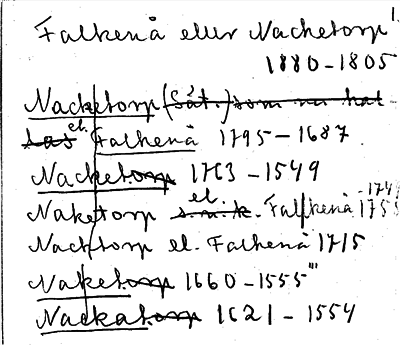 Falkenå eller Nacketorp 1.
1880-1805
Nacketorp (Såt.) som nu hat
tas el. Falkenå 1795-1687
Nacketorp 1763-1549
-1749
Naketorp s.n.k. el. Falkenå 1755
Nacktorp el. Falkenå 1715
Naketorp 1660-1555
Nackatorp 1621-1554